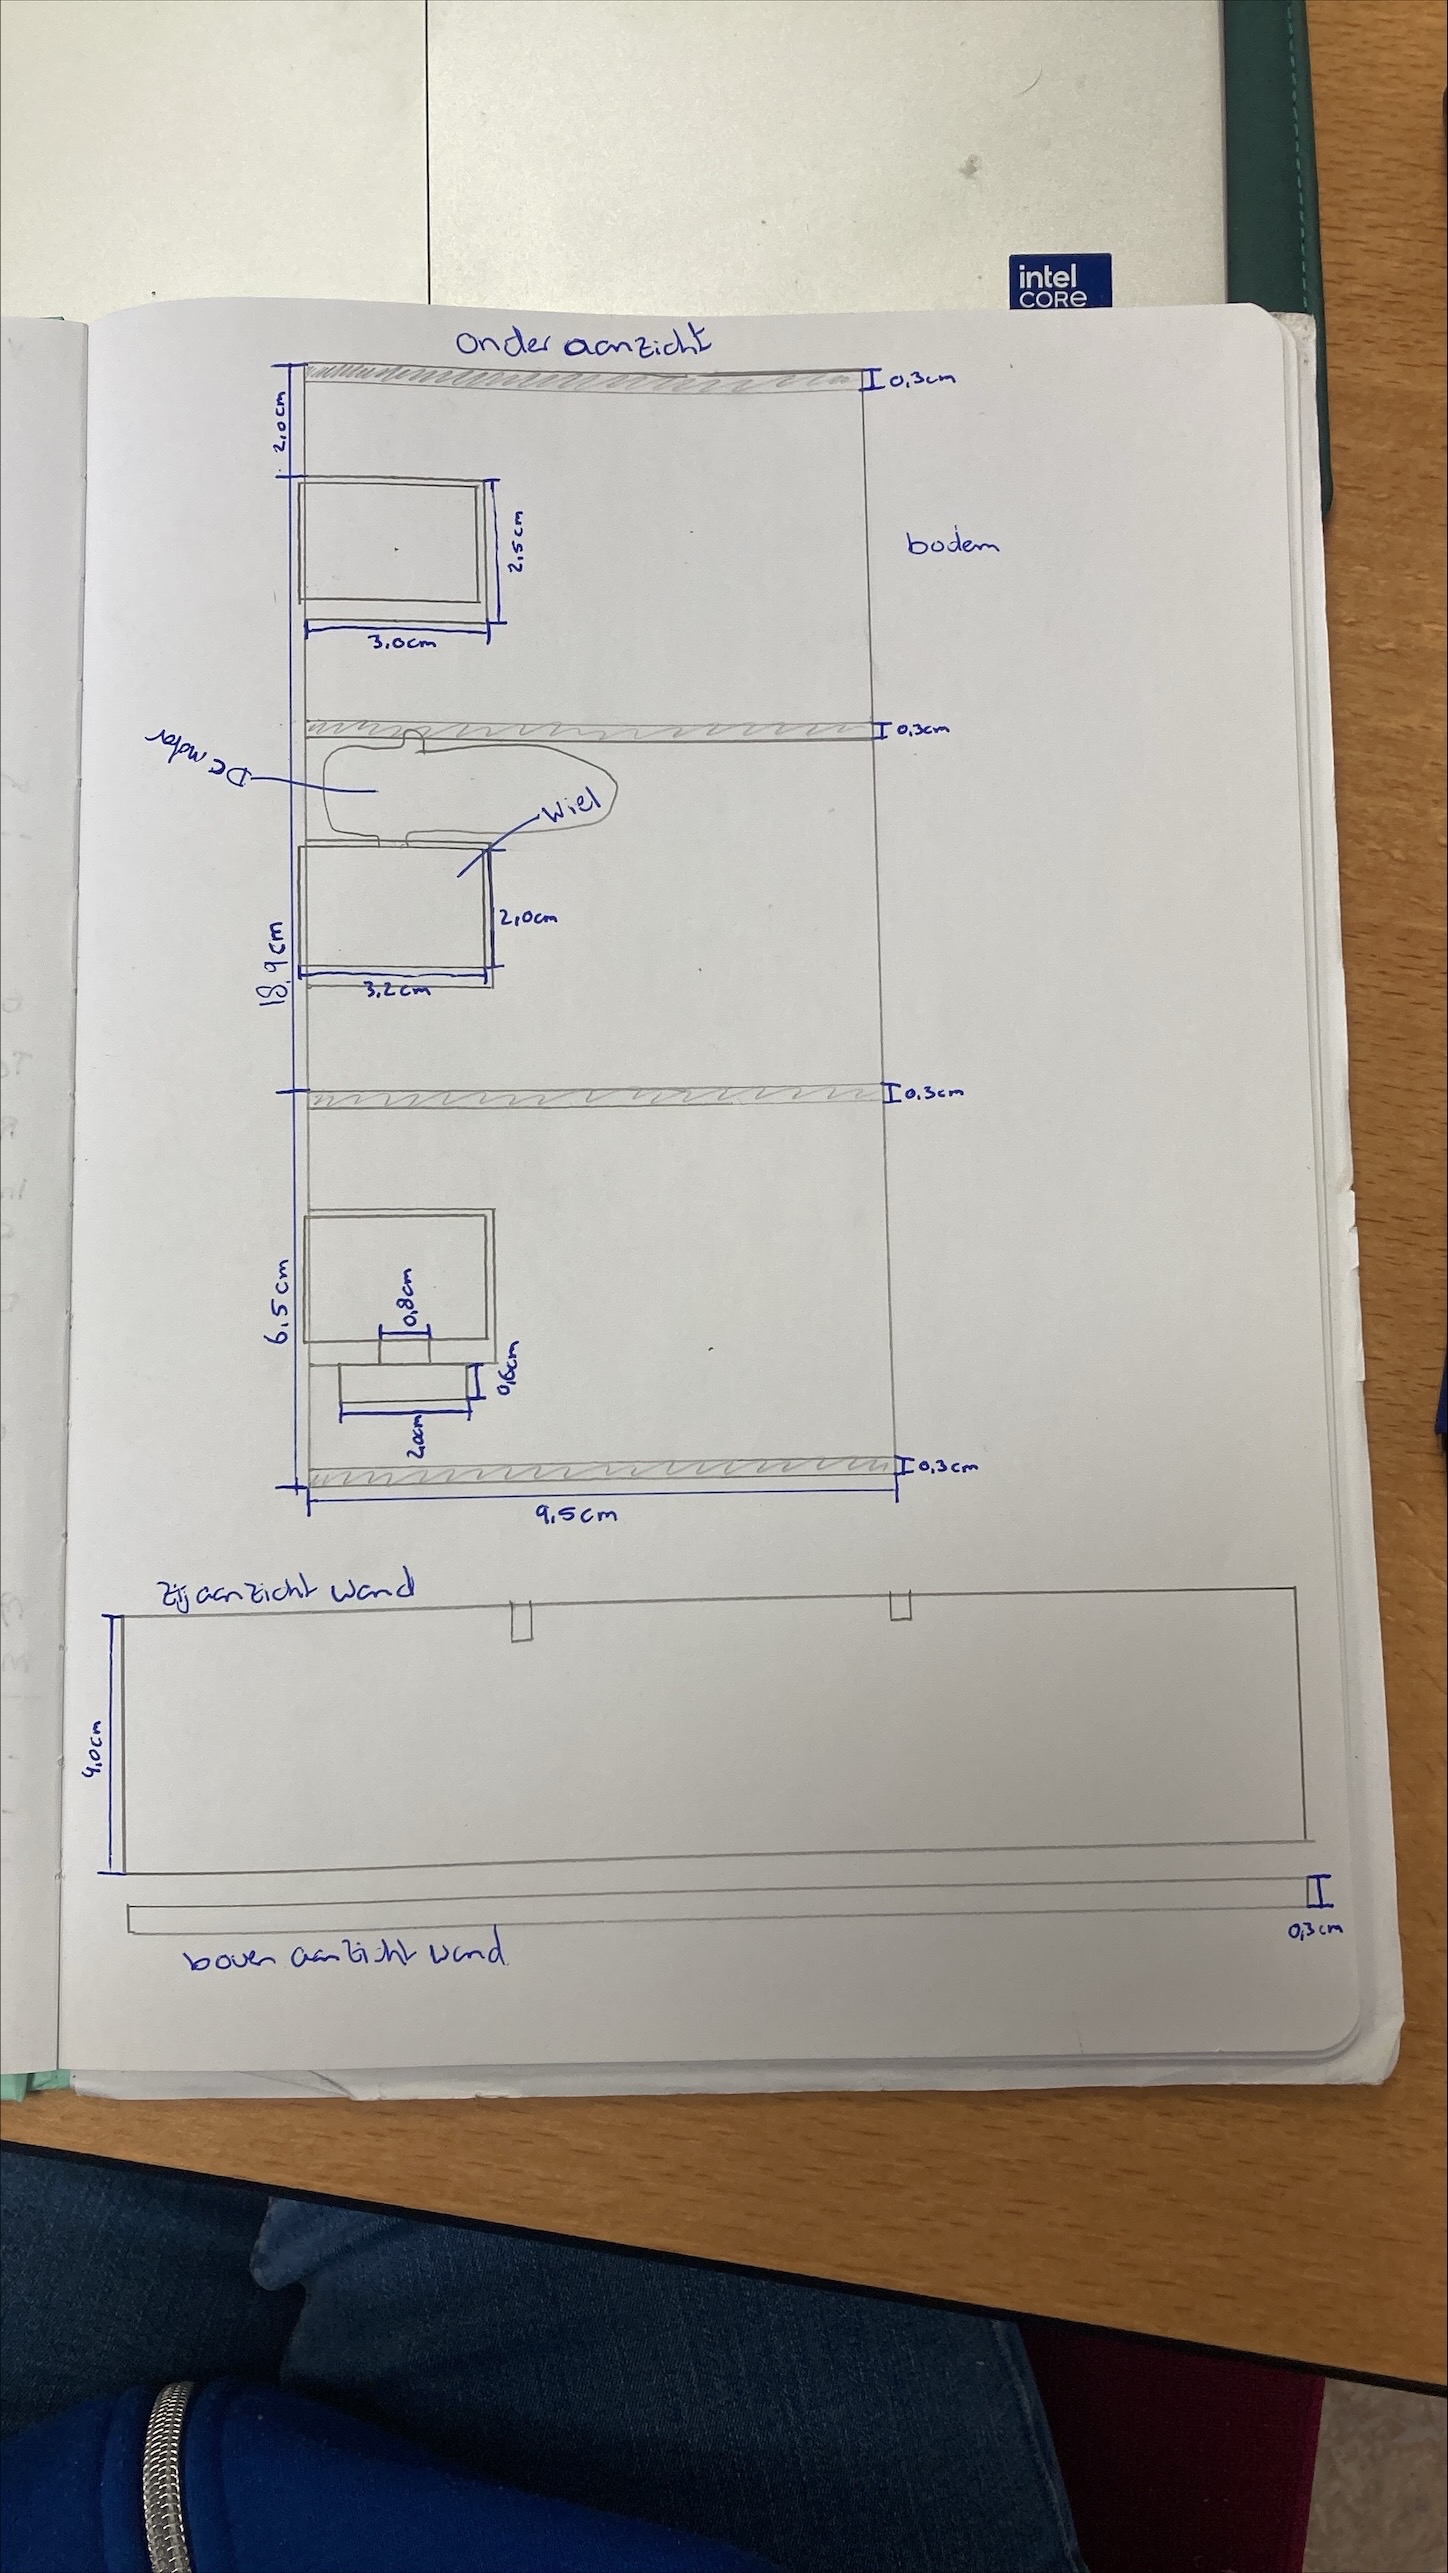 intel
CORE
onder aanzicht
0,3cm
2,0cm
2,5cm
bodem
3,0cm
0,3cm
DC motor
Wiel
2,0cm
18,9cm
3,2cm
0,3cm
6,5cm
0,8cm
0,6cm
2,0cm
0,3cm
9,5cm
zijaanzicht wand
4,0cm
0,3cm
boven aanzicht wand